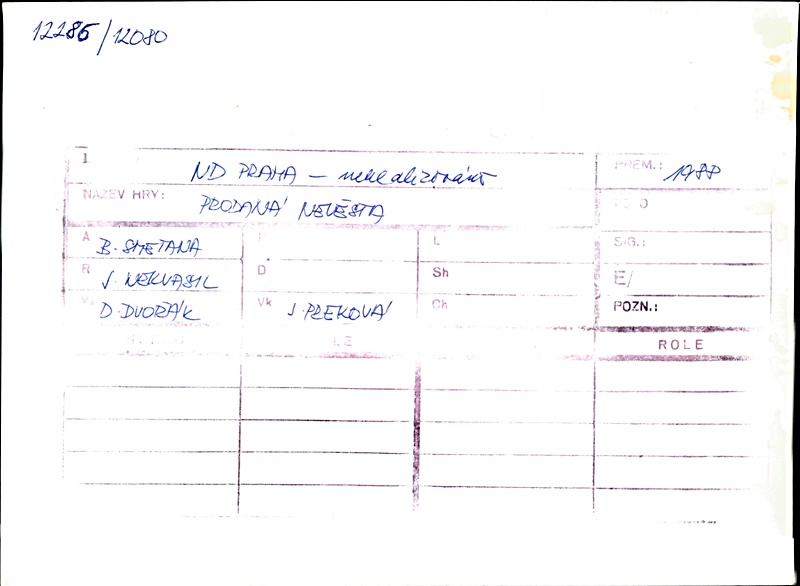 12285/12080
1 ND PRAHA – nerealizováno PREM.: 1988
NÁZEV HRY: PRODANÁ NEVĚSTA
A B. SMETANA L SIG.:
R J. NEKVASIL D Sh E/
D. DVOŘÁK Vk J. PREKOVÁ Ch POZN.:
ROLE